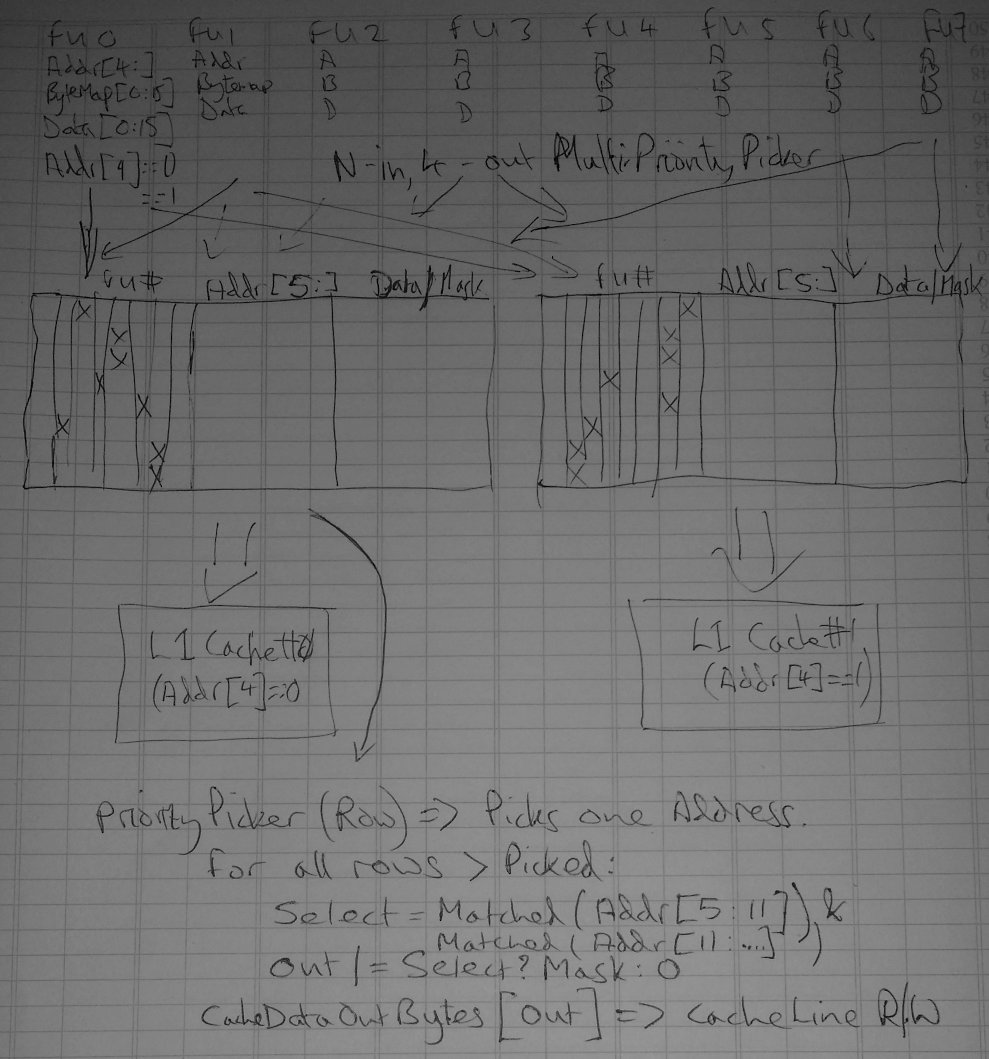 fu 0 fu1 fu 2 fu 3 fu 4 fu 5 fu 6 fu7
Addr[4:] Addr A A A A A A
ByteMap[0:15] Bytemap B B B B B B
Data[0:15] Data D D D D D D
Addr[4]==0 N-in, 4-out Multi Priority Picker
==1
fu# Addr[5:] Data/Mask fu# Addr[5:] Data/Mask
L1 Cache#0 L1 Cache#1
(Addr[4]==0 (Addr[4]==1)
Priority Picker (Row) => Picks one Address.
for all rows > Picked:
Select = Matched(Addr[5:11]) &
Matched(Addr[11:...])
Out |= Select? Mask: 0
CacheDataOutBytes [Out] => CacheLine R/W